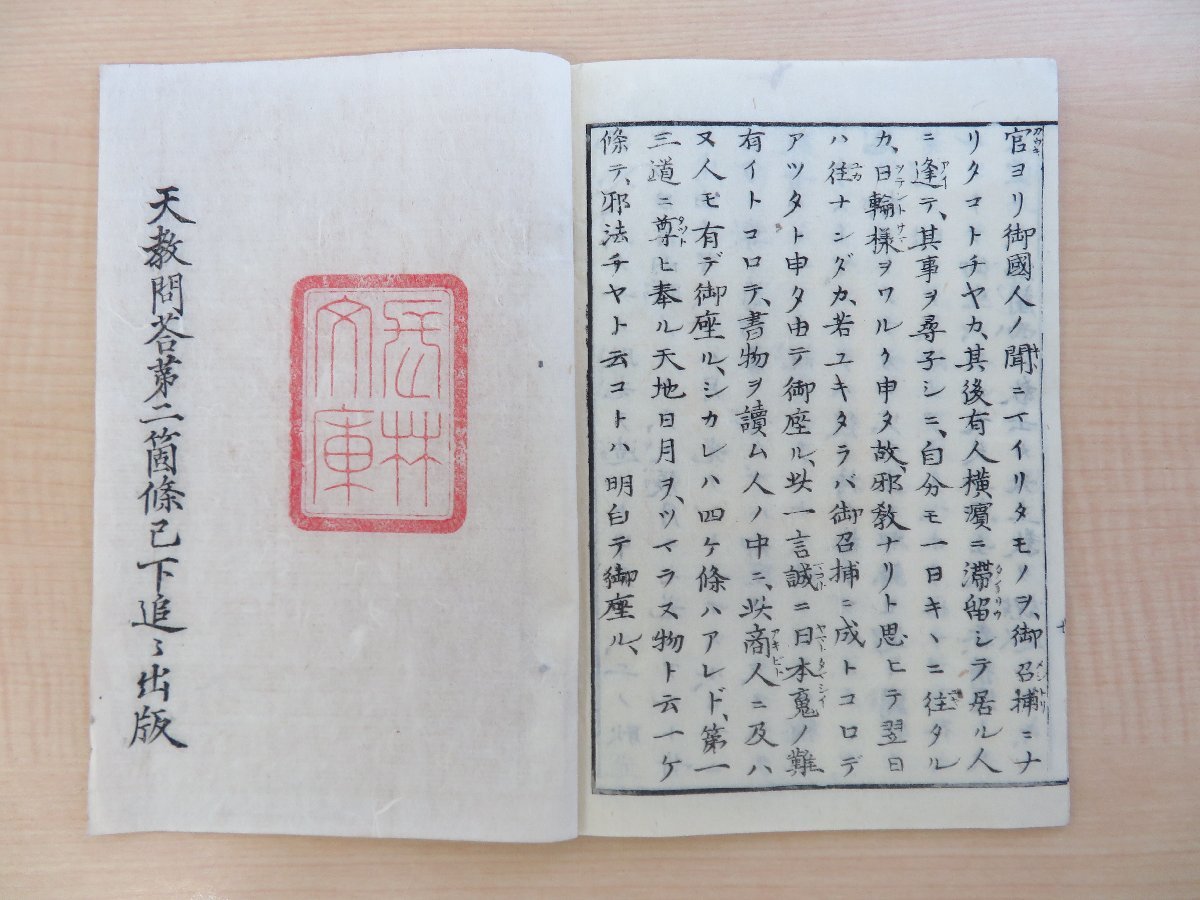 官ヨリ御國人ノ聞ニイリタモノヲ、御召捕ニナ
リタコトチヤカ、其後有人横濵ニ滞留シテ居ル人
ニ逢テ、其事ヲ尋子シニ、自分モ一日キヽニ往タル
カ、日輪様ヲワルク申タ故、邪教ナリト思ヒテ翌日
ハ往ナンダカ、若ユキタラバ御召捕ニ成トコロデ
アツタト申タ由テ御座ル、此一言誠ニ日本魂ノ難
有イトコロテ、書物ヲ讀ム人ノ中ニ、此商人ニ及ハ
又人モ有デ御座ル、シカレハ四ケ條ハアレド、第一
三道ニ尊ヒ奉ル天地日月ヲ、ツマラス物ト云一ケ
條テ、邪法チヤト云コトハ明白テ御座ル、
文庫
天教問答第二箇條已下追〻出版